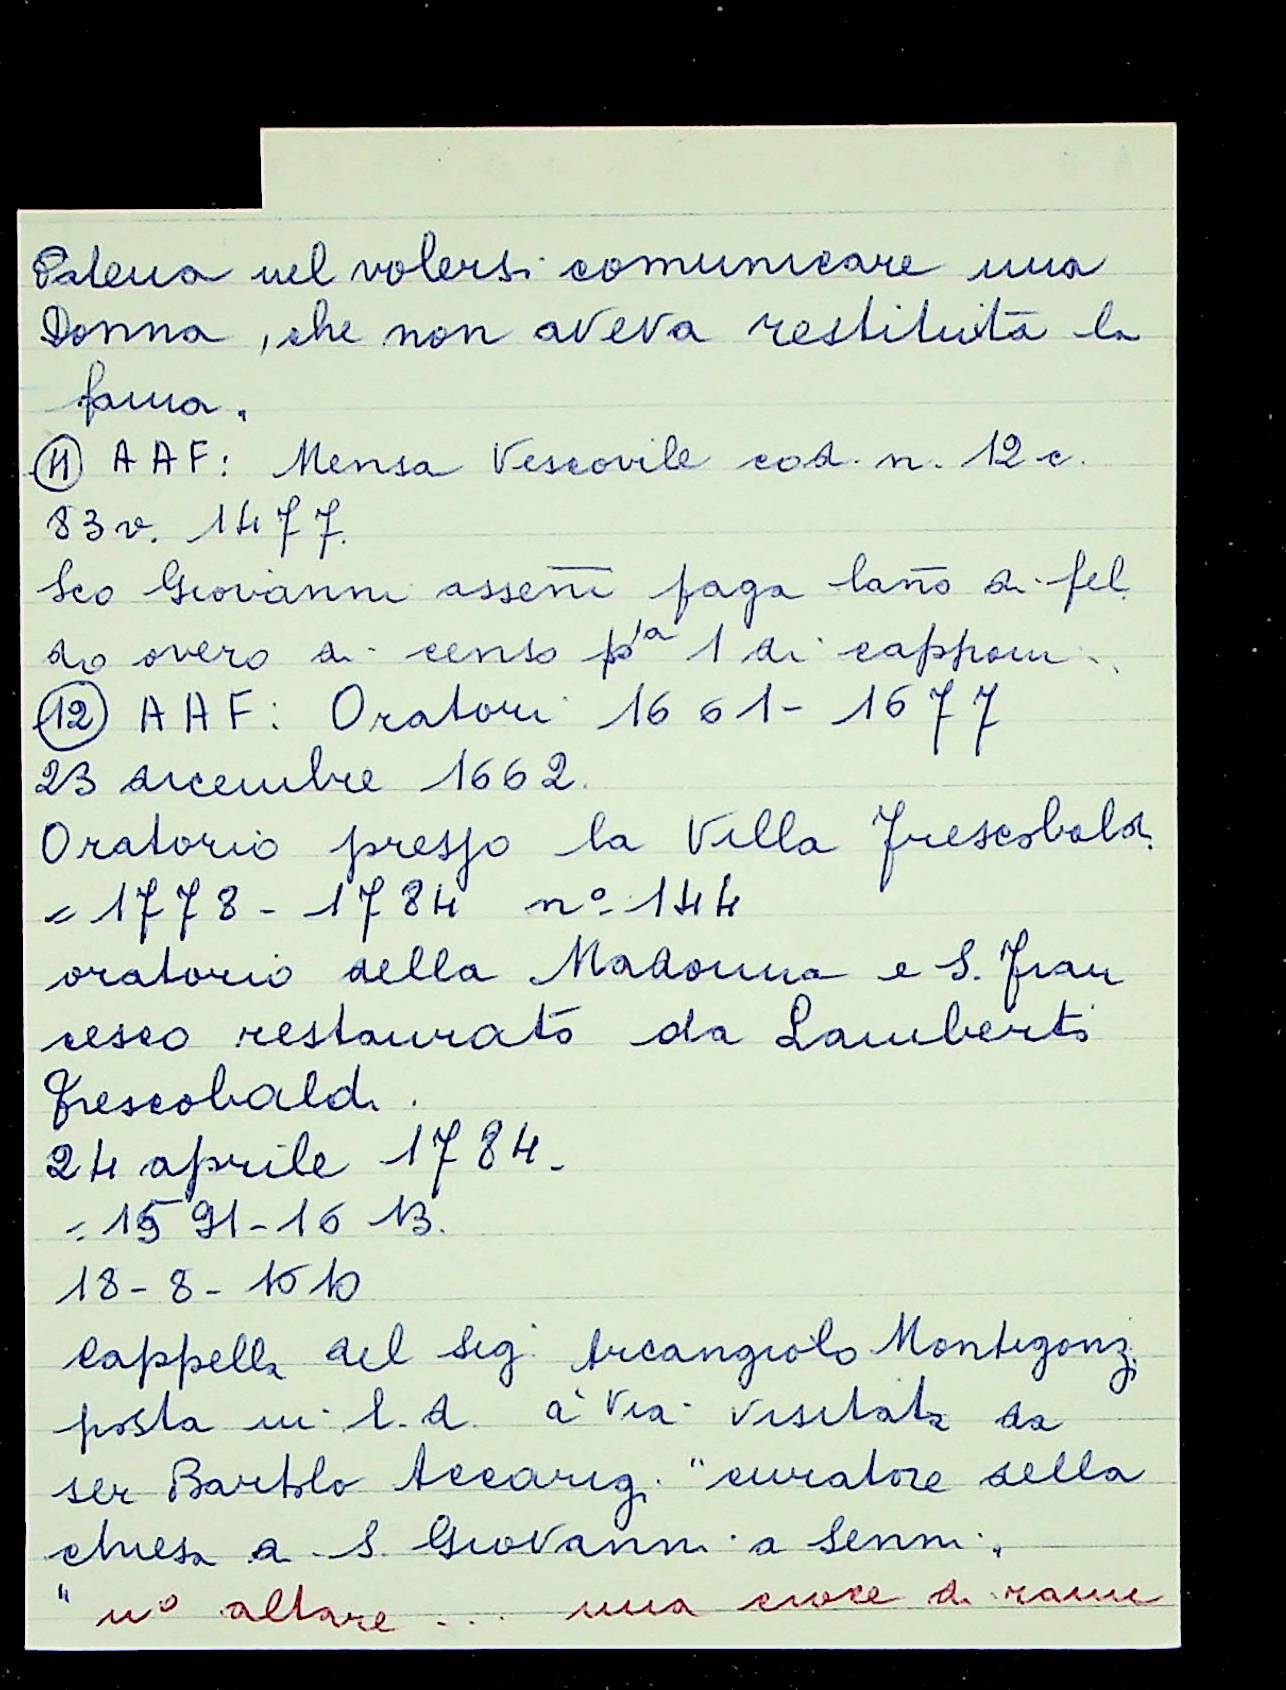 Patena nel volersi comunicare una
Donna, che non aveva restituità la
fama.
(11) AAF: Mensa Vescovile cod. n. 12 c.
83v. 1477.
Sco Giovanni assenī paga laño di fel
do overo di censo pia 1 di capponi..
(12) AAF: Oratori 1661-1677
23 dicembre 1662.
Oratorio presso la Villa Frescobaldi
= 1778-1784 n° 144
oratorio della Madonna e S. Fran
cesco restaurato da Lamberto
Frescobaldi.
24 aprile 1784.
= 1591-1613.
18-8-1610
Cappella del Sig. Arcangiolo Montigonzi
posta in l.d. a Via visitata da
ser Bartolo Accarigi "curatore della
chiesa a S. Giovanni a Senni.
" n° altare ... una croce di rame